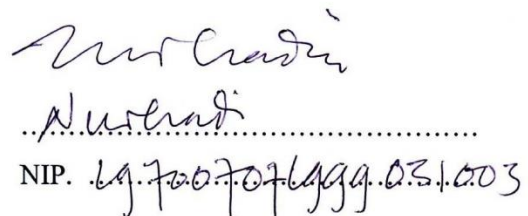 Nurhadi
NIP. 197007071999031003